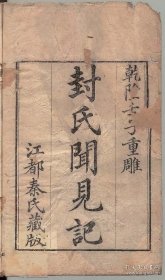 乾隆壬子重雕
封氏聞見記
江都秦氏藏版